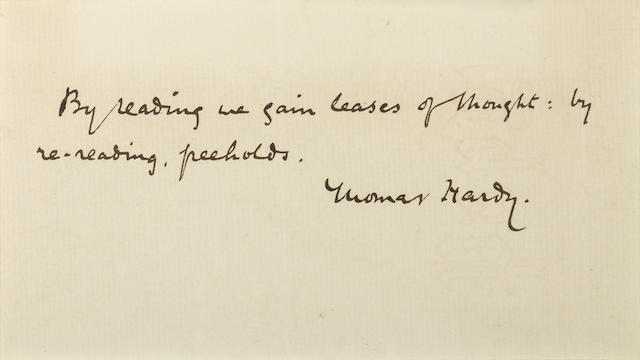 By reading we gain leases of thought: by
re-reading, freeholds.
Thomas Hardy.